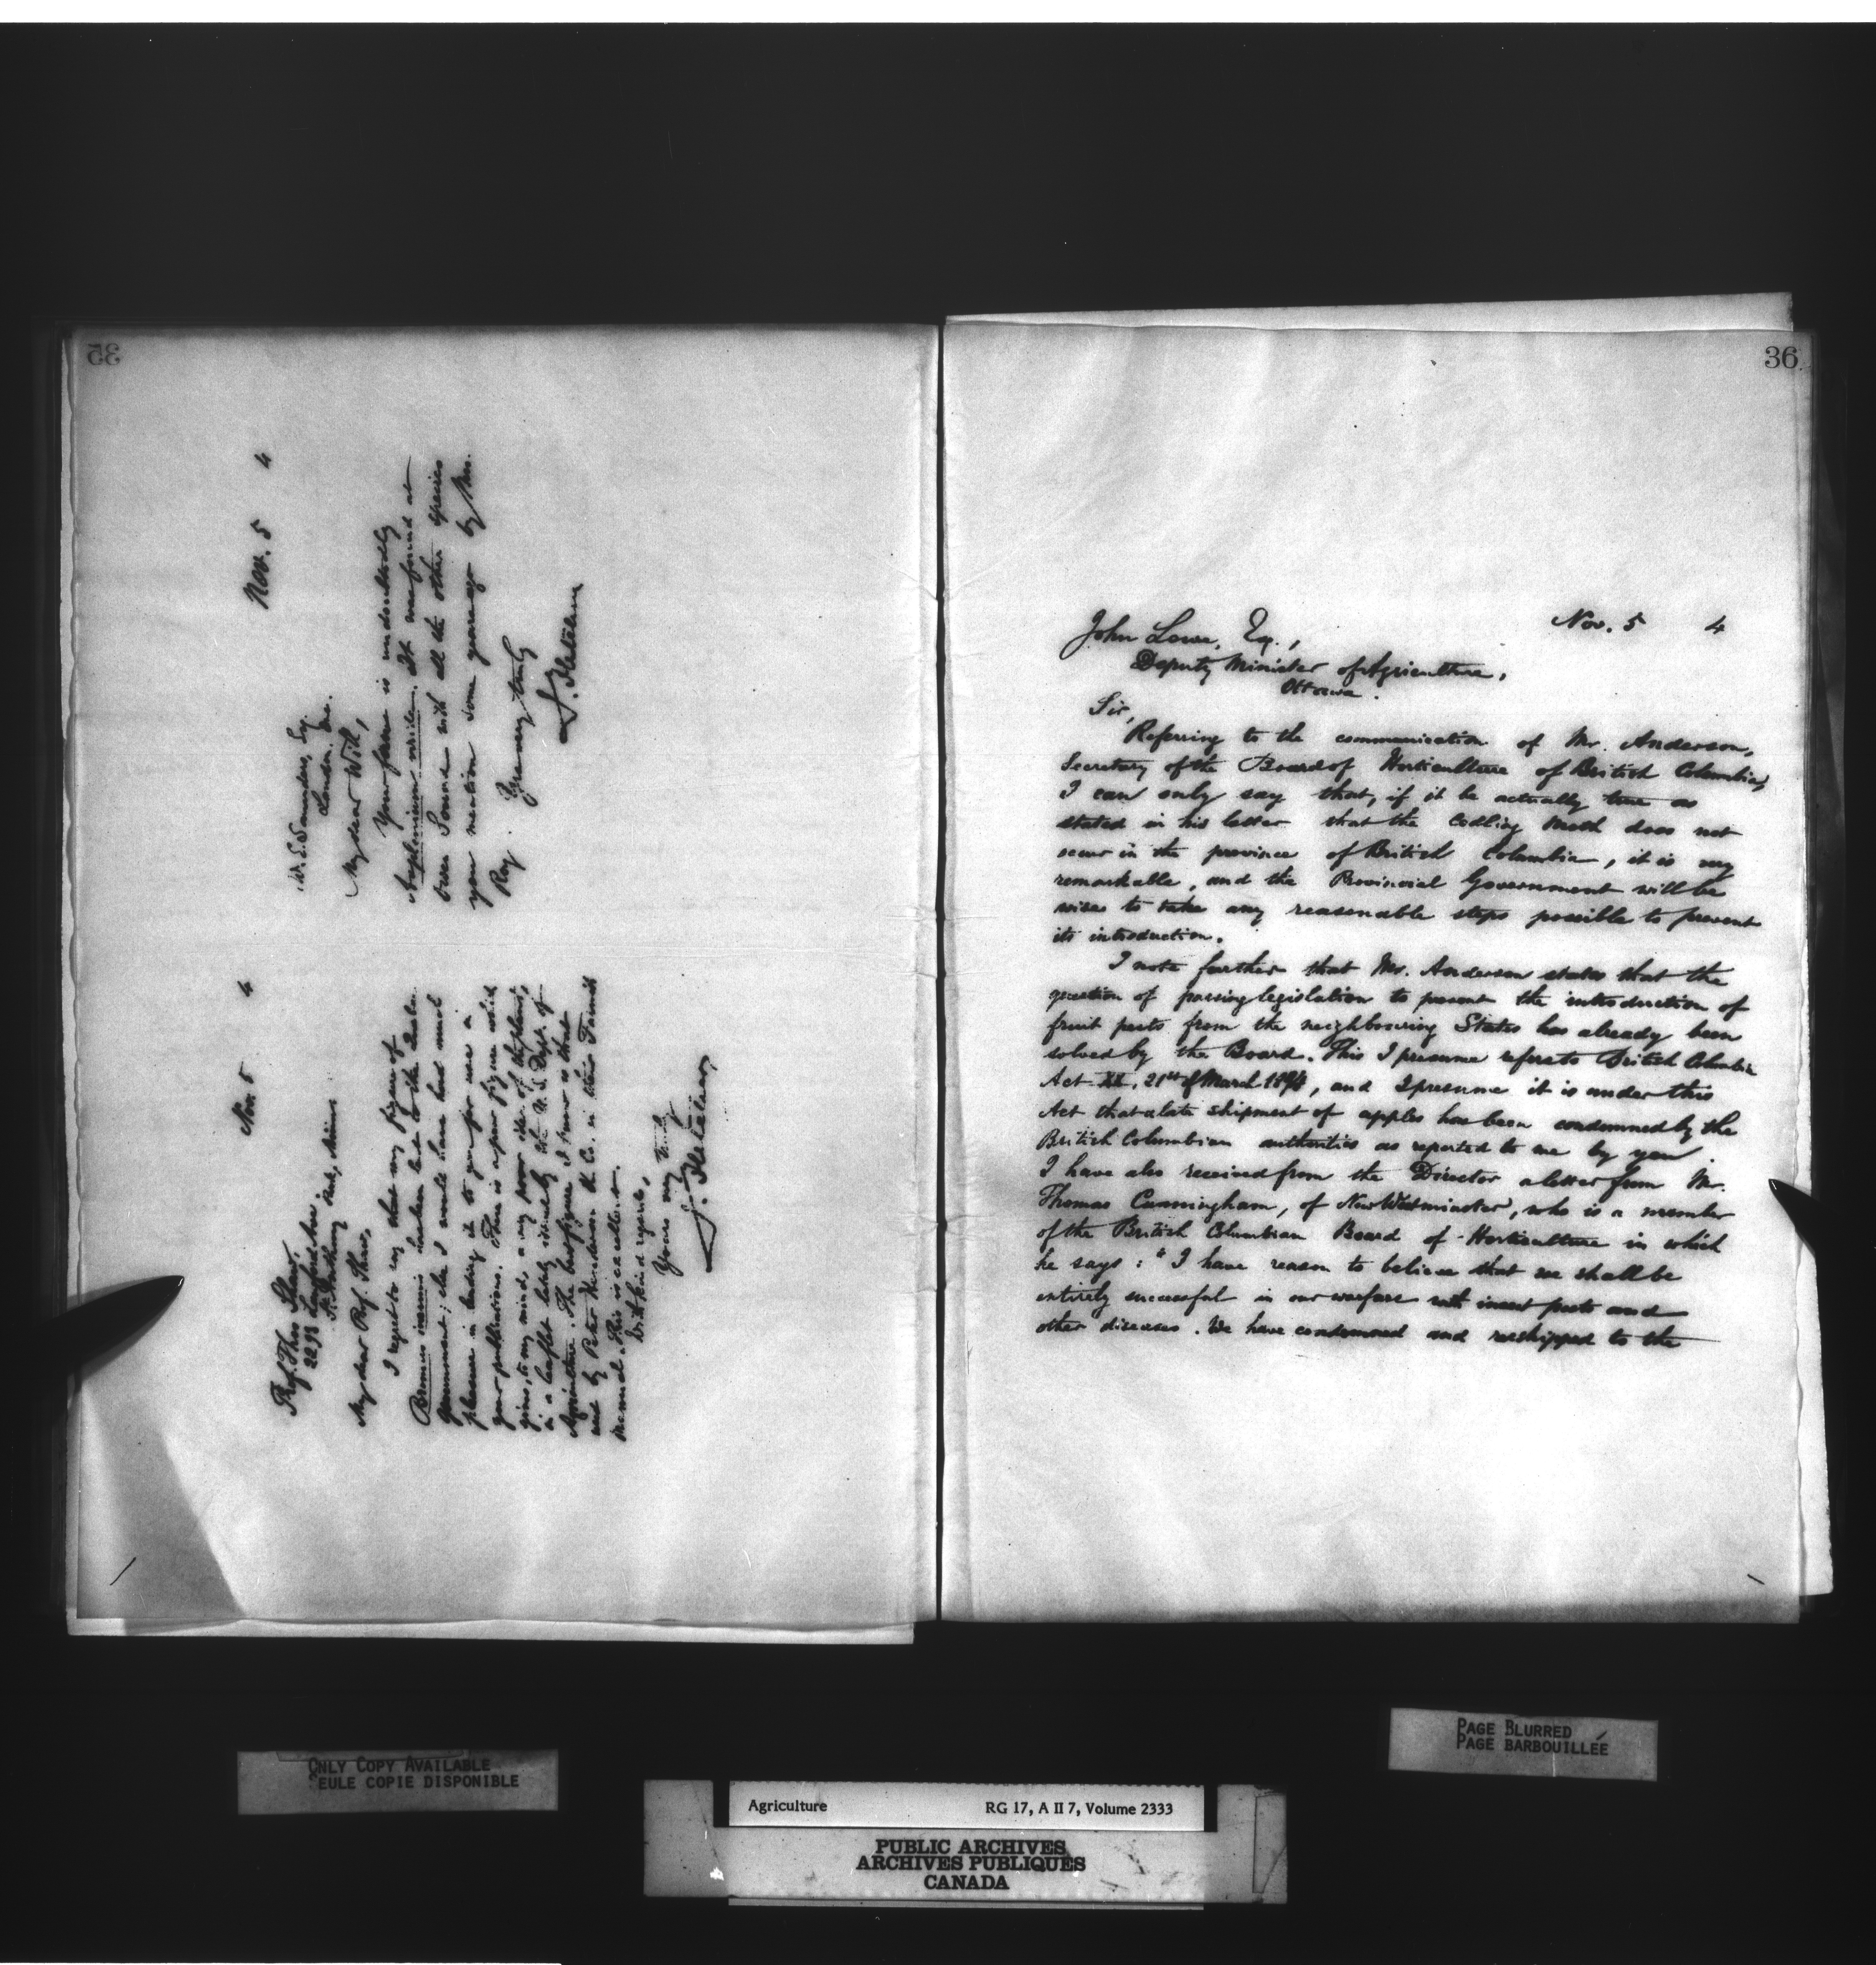 35
Nov. 5 4
W. E. Saunders, Esq.
London. Ont.
My dear Will,
Your fern is undoubtedly
Asplenium viride. It was found at
Owen Sound with all the other species
you mention some years ago by Mrs.
Roy. Yours very truly
J. Fletcher
Nov. 5 4
Prof. Thos Shaw,
2293 Langford Av.
St. Anthony Park, Minn
My dear Prof. Shaw,
I regret to say that my figure of
Bromus inermis has been lent to the
Government; else I would have had much
pleasure in lending it to you for use in
your publications. There is a poor figure which
gives, to my mind, a very poor idea of the plant,
in a leaflet lately issued by the U. S. Dept. of
Agriculture. The best figure I know is that
used by Peter Henderson & Co. in their Farmers
manual. This is excellent.
With kind regards,
Yours very truly
J. Fletcher
36
Nov. 5 4
John Lowe, Esq.,
Deputy Minister of Agriculture,
Ottawa.
Sir,
Referring to the communication of Mr. Anderson,
Secretary of the Board of Horticulture of British Columbia,
I can only say that, if it be actually true as
stated in his letter that the Codling Moth does not
occur in the province of British Columbia, it is very
remarkable, and the Provincial Government will be
wise to take any reasonable steps possible to prevent
its introduction.
I note further that Mr. Anderson states that the
question of passing legislation to prevent the introduction of
fruit pests from the neighbouring States has already been
solved by the Board. This I presume refers to British Columbia
Act XII. 21st of March 1894, and I presume it is under this
Act that a late shipment of apples has been condemned by the
British Columbian authorities as reported to me by you.
I have also received from the Director a letter from Mr.
Thomas Cunningham, of New Westminster, who is a member
of the British Columbian Board of Horticulture in which
he says: "I have reason to believe that we shall be
entirely successful in our warfare with insect pests and
other diseases. We have condemned and reshipped to the
ONLY COPY AVAILABLE
SEULE COPIE DISPONIBLE
PAGE BLURRED
PAGE BARBOUILLÉE
Agriculture RG 17, A II 7, Volume 2333
PUBLIC ARCHIVES
ARCHIVES PUBLIQUES
CANADA